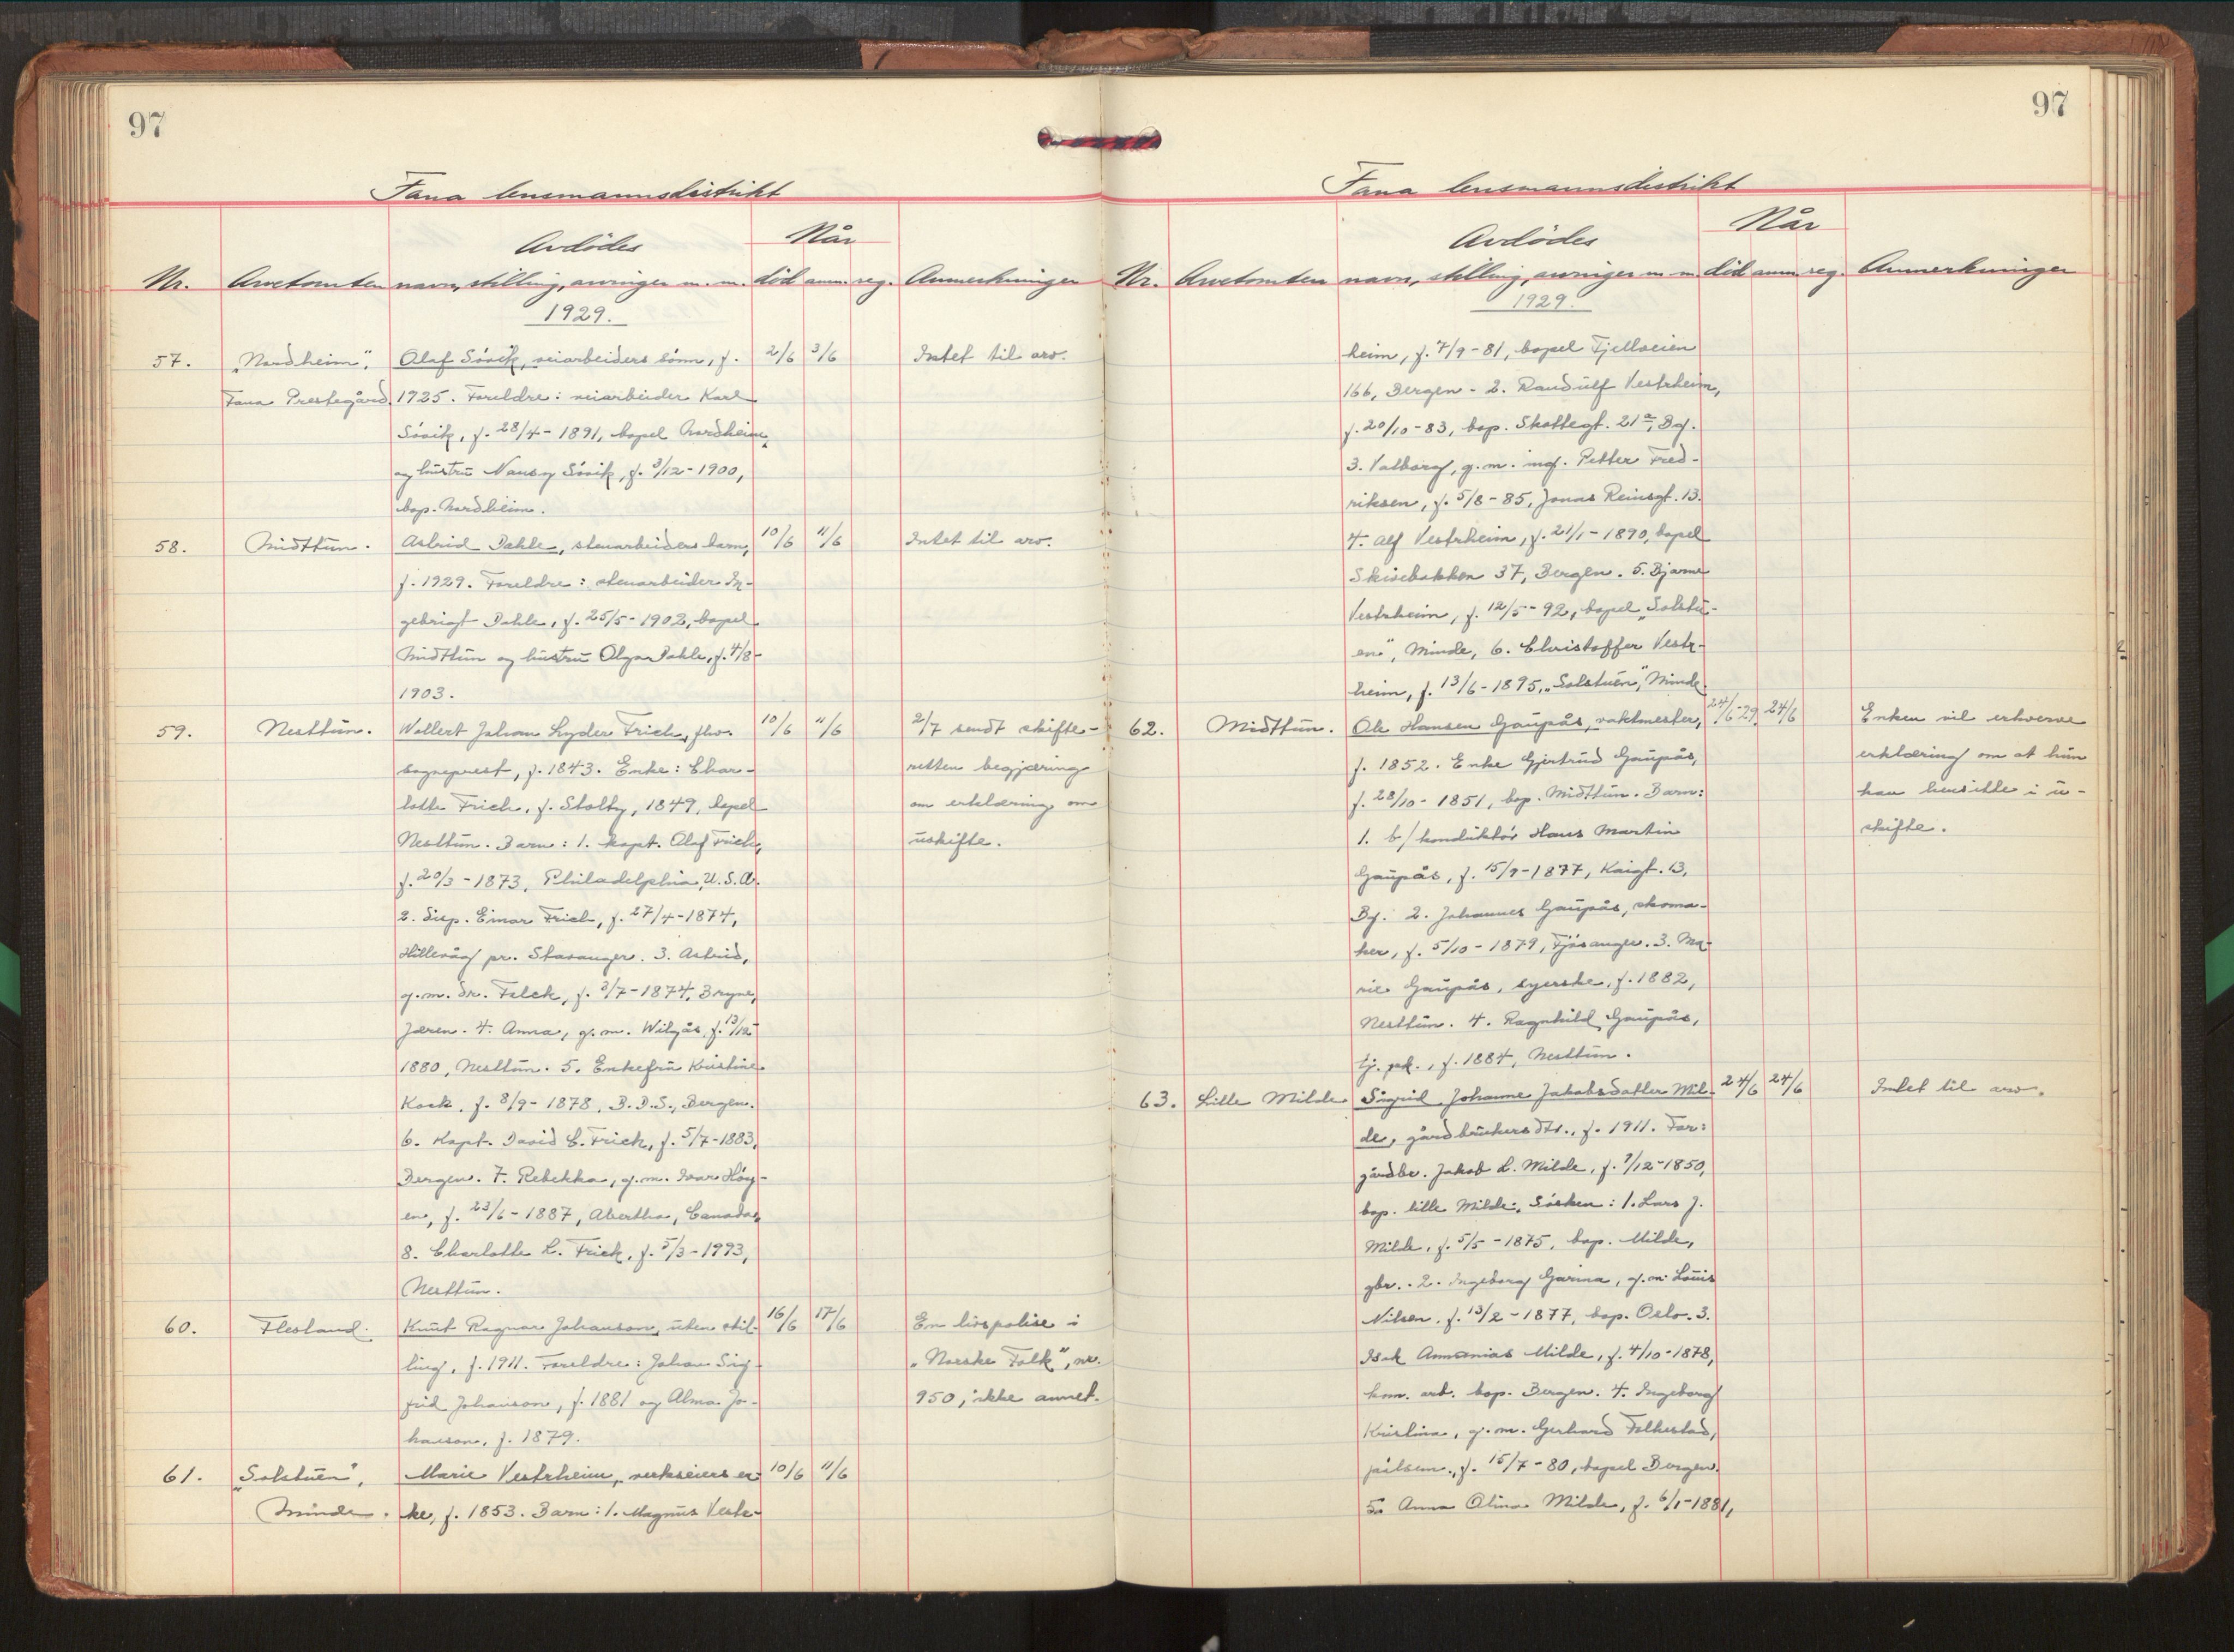 97
Fana lensmannsdistrikt
Avdödes
Når
Nr. Arvetomten navn, stilling, arvinger m. m. död anm. reg. Anmerkninger
1929.
57. „Nordheim“, Olaf Sövik, veiarbeiders sönn, f. 2/6 3/6 Intet til arv.
Fana Prestegård. 1925. Foreldre: veiarbeider Karl
Sövik, f. 28/4 - 1891, bopel Nordheim,
og hustru Nansy Sövik, f. 3/12 - 1900,
bop. Nordheim.
58. Midttun. Astrid Dahle, stenarbeiders barn, 10/6 11/6 Intet til arv.
f. 1929. Foreldre: stenarbeider In-
gebrigt Dahle, f. 25/5 - 1902, bopel
Midttun og hustru Olga Dahle, f. 4/8 -
1903.
59. Nesttun. Wollert Johan Lyder Frich, fhv. 10/6 11/6 2/7 sendt skifte-
sogneprest, f. 1843. Enke: Char- retten begjæring
lotte Frich, f. Stoltz, 1849, bopel om erklæring om
Nesttun. Barn: 1. kapt. Olaf Frich, uskifte.
f. 20/3 - 1873, Philadelphia, U.S.A.
2. Disp. Einar Frich, f. 27/4 - 1874,
Hillevåg pr. Stavanger. 3. Astrid,
g.m. Dr. Falck, f. 3/7 - 1874, Bryne,
Jæren. 4. Anna, g.m. Wilgås, f. 13/12 -
1880, Nesttun. 5. Enkefru Kristine
Kock, f. 8/9 - 1878, B.D.S., Bergen.
6. Kapt. David C. Frich, f. 5/7 - 1883,
Bergen. 7. Rebekka, g.m. Ivar Höy-
en, f. 23/6 - 1887, Abertha, Canada,
8. Charlotte L. Frich, f. 5/3 - 1993,
Nesttun.
60. Flesland. Knut Ragnar Johanson, uten stil- 16/6 17/6 En livspolise i
ling, f. 1911. Foreldre: Johan Sig- „Norske Folk“, nr.
frid Johanson, f. 1881 og Alma Jo- 950, ikke annet.
hanson, f. 1879.
61. „Solstuen“, Marie Vestrheim, verkseiers en- 10/6 11/6
Minde. ke, f. 1853. Barn: 1. Magnus Vestr-
97
Fana lensmannsdistrikt
Avdödes
Når
Nr. Arvetomten navn, stilling, arvinger m. m. död anm. reg. Anmerkninger
1929.
heim, f. 7/9 - 81, bopel Fjellveien
166, Bergen - 2. Randulf Vestrheim,
f. 20/10 - 83, bop. Skottegt. 21a, Bg.
3. Valborg, g.m. ing. Petter Fred-
riksen, f. 5/8 - 85, Jonas Reinsgt. 13.
4. Alf Vestrheim, f. 21/1 - 1890, bopel
Skivebakken 37, Bergen. 5. Bjarne
Vestrheim, f. 12/5 - 92, bopel „Solstu-
en“, Minde, 6. Christoffer Vestr-
heim, f. 13/6 - 1895, „Solstuen“, Minde.
62. Midttun. Ole Hansen Gaupås, vaktmester, 24/6-29. 24/6 Enken vil erhverve
f. 1852. Enke Gjertrud Gaupås, erklæring om at hun
f. 28/10 - 1851, bop. Midttun. Barn: kan hensitte i u-
1. b/konduktör Hans Martin skifte.
Gaupås, f. 15/9 - 1877, Kaigt. 13,
Bg. 2. Johannes Gaupås, skoma-
ker, f. 5/10 - 1879, Fjösanger. 3. Ma-
rie Gaupås, syerske, f. 1882,
Nesttun. 4. Ragnhild Gaupås,
tj. pik., f. 1884, Nesttun.
63. Lille Milde Sigrid Johanne Jakobsdatter Mil- 24/6 24/6 Intet til arv.
de, gårdbrukers dtr., f. 1911. Far:
gårdbr. Jakob L. Milde, f. 7/12 - 1850,
bop. lille Milde. Sösken: 1. Lars J.
Milde, f. 5/5 - 1875, bop. Milde,
gbr. 2. Ingeborg Garina, g.m. Louis
Nilsen, f. 13/2 - 1877, bop. Oslo. 3.
Isak Annanias Milde, f. 4/10 - 1878,
kom. arb. bop. Bergen. 4. Ingeborg
Kristina, g.m. Gerhard Folkestad,
f. 15/7 - 80, bopel Bergen.
5. Anna Olina Milde, f. 6/1 - 1881,